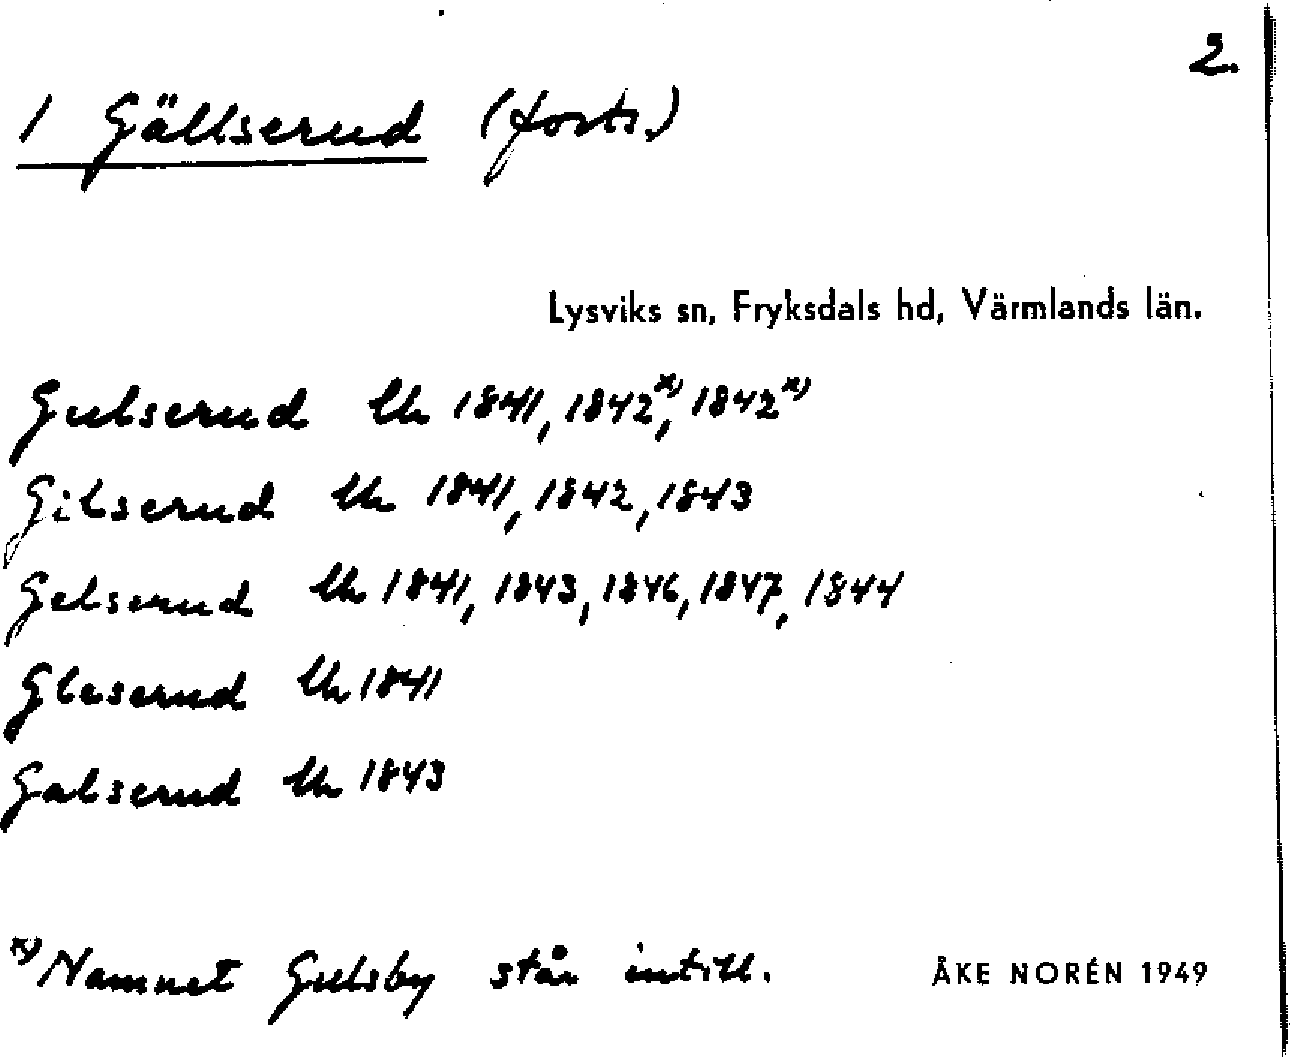 2.
1 Gällserud (forts.)
Lysviks sn, Fryksdals hd, Värmlands län.
Gulserud lk 1841, 1842ˣ⁾, 1842ˣ⁾
Gilserud lk 1841, 1842, 1843
Gelserud lk 1841, 1843, 1846, 1847, 1844
Gleserud lk 1841
Galserud lk 1843
ˣ⁾ Namnet Gulsby står intill.
ÅKE NORÉN 1949